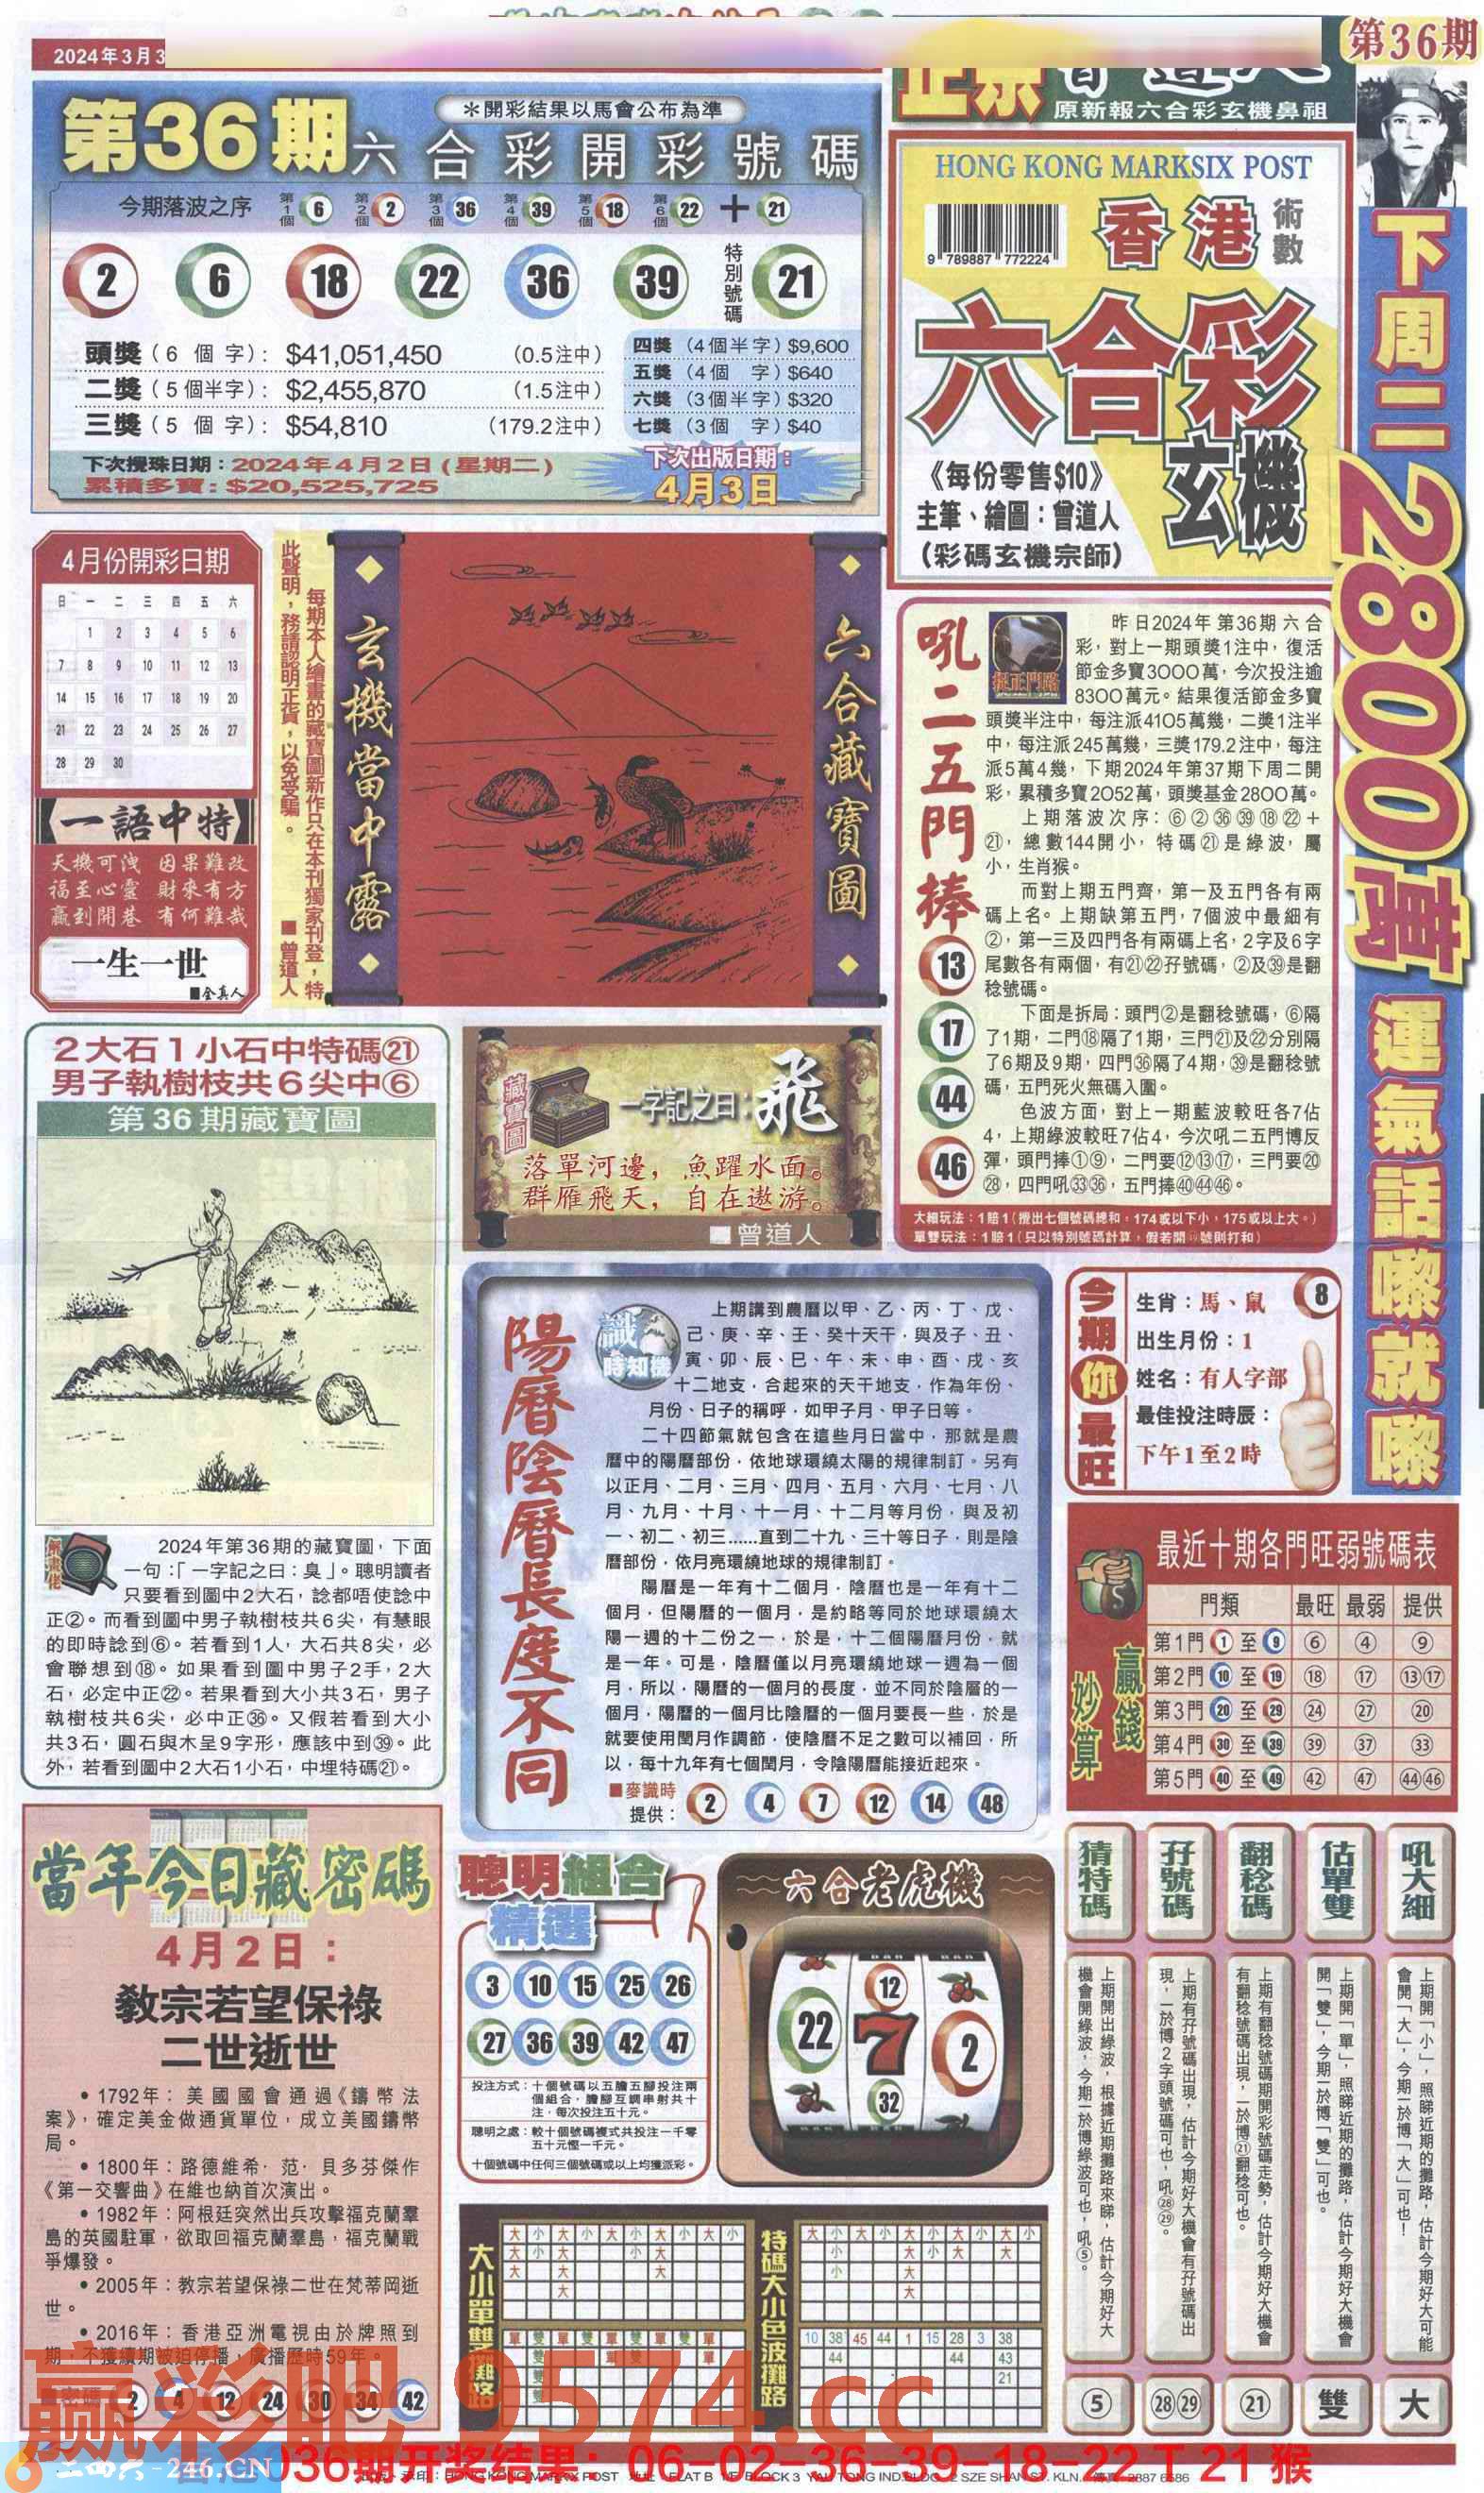 第36期
2024年3月3
原新報六合彩玄機鼻祖
第36期六合彩開彩號碼
＊開彩結果以馬會公布為準
今期落波之序 第1個 6 第2個 2 第3個 36 第4個 39 第5個 18 第6個 22 + 21
2 6 18 22 36 39 特別號碼 21
頭獎（6 個 字）: $41,051,450 （0.5注中）
二獎（5個半字）: $2,455,870 （1.5注中）
三獎（5 個 字）: $54,810 （179.2注中）
四獎（4個半字）$9,600
五獎（4個 字）$640
六獎（3個半字）$320
七獎（3個 字）$40
下次攪珠日期：2024年4月2日（星期二）
累積多寶：$20,525,725
下次出版日期：
4月3日
HONG KONG MARKSIX POST
9 789887 772224
香港
術數
六合彩
玄機
《每份零售$10》
主筆、繪圖：曾道人
（彩碼玄機宗師）
下周二2800萬運氣話嚟就嚟
4月份開彩日期
日 一 二 三 四 五 六
1 2 3 4 5 6
7 8 9 10 11 12 13
14 15 16 17 18 19 20
21 22 23 24 25 26 27
28 29 30
一語中特
天機可洩 因果難改
福至心靈 財來有方
贏到開巷 有何難哉
一生一世
■全真人
每期本人繪畫的藏寶圖新作只在本刊獨家刊登，特
此聲明，務請認明正貨，以免受騙。 ■曾道人
玄機當中露
六合藏寶圖
吼二五門捧
13
17
44
46
捉正門路
昨日2024年第36期六合
彩，對上一期頭獎1注中，復活
節金多寶3000萬，今次投注逾
8300萬元。結果復活節金多寶
頭獎半注中，每注派4105萬幾，二獎1注半
中，每注派245萬幾，三獎179.2注中，每注
派5萬4幾，下期2024年第37期下周二開
彩，累積多寶2052萬，頭獎基金2800萬。
上期落波次序：⑥②㊱㊴⑱㉒＋
㉑，總數144開小，特碼㉑是綠波，屬
小，生肖猴。
而對上期五門齊，第一及五門各有兩
碼上名。上期缺第五門，7個波中最細有
②，第一三及四門各有兩碼上名，2字及6字
尾數各有兩個，有㉑㉒孖號碼，②及㊴是翻
稔號碼。
下面是拆局：頭門②是翻稔號碼，⑥隔
了1期，二門⑱隔了1期，三門㉑及㉒分別隔
了6期及9期，四門㊱隔了4期，㊴是翻稔號
碼，五門死火無碼入圍。
色波方面，對上一期藍波較旺各7佔
4，上期綠波較旺7佔4，今次吼二五門博反
彈，頭門捧①⑨，二門要⑫⑬⑰，三門要⑳
㉘，四門吼㉝㊱，五門捧㊵㊹㊻。
大細玩法：1賠1（攪出七個號碼總和，174或以下小，175或以上大。）
單雙玩法：1賠1（只以特別號碼計算，假若開㊾號則打和）
2大石1小石中特碼㉑
男子執樹枝共6尖中⑥
第36期藏寶圖
藏寶圖
一字記之曰：飛
落單河邊，魚躍水面。
群雁飛天，自在遨游。
■曾道人
2024年第36期的藏寶圖，下面
一句：「一字記之曰：臭」。聰明讀者
只要看到圖中2大石，諗都唔使諗中
正②。而看到圖中男子執樹枝共6尖，有慧眼
的即時諗到⑥。若看到1人，大石共8尖，必
會聯想到⑱。如果看到圖中男子2手，2大
石，必定中正㉒。若果看到大小共3石，男子
執樹枝共6尖，必中正㊱。又假若看到大小
共3石，圓石與木呈9字形，應該中到㊴。此
外，若看到圖中2大石1小石，中埋特碼㉑。
陽曆陰曆長度不同
識時知機
上期講到農曆以甲、乙、丙、丁、戊、
己、庚、辛、壬、癸十天干，與及子、丑、
寅、卯、辰、巳、午、未、申、酉、戌、亥
十二地支，合起來的天干地支，作為年份、
月份、日子的稱呼，如甲子月、甲子日等。
二十四節氣就包含在這些月日當中，那就是農
曆中的陽曆部份，依地球環繞太陽的規律制訂。另有
以正月、二月、三月、四月、五月、六月、七月、八
月、九月、十月、十一月、十二月等月份，與及初
一、初二、初三……直到二十九、三十等日子，則是陰
曆部份，依月亮環繞地球的規律制訂。
陽曆是一年有十二個月，陰曆也是一年有十二
個月，但陽曆的一個月，是約略等同於地球環繞太
陽一週的十二份之一，於是，十二個陽曆月份，就
是一年。可是，陰曆僅以月亮環繞地球一週為一個
月，所以，陽曆的一個月的長度，並不同於陰曆的一
個月，陽曆的一個月比陰曆的一個月要長一些，於是
就要使用閏月作調節，使陰曆不足之數可以補回，所
以，每十九年有七個閏月，令陰陽曆能接近起來。
■麥識時
提供： 2 4 7 12 14 48
今期你最旺
生肖：馬、鼠 8
出生月份：1
姓名：有人字部
最佳投注時辰：
下午1至2時
最近十期各門旺弱號碼表
贏錢妙算
門類 最旺 最弱 提供
第1門 1 至 9 ⑥ ④ ⑨
第2門 10 至 19 ⑱ ⑰ ⑬⑰
第3門 20 至 29 ㉔ ㉗ ⑳
第4門 30 至 39 ㊴ ㊲ ㉝
第5門 40 至 49 ㊷ ㊼ ㊹㊻
當年今日藏密碼
4月2日：
教宗若望保祿
二世逝世
• 1792年：美國國會通過《鑄幣法
案》，確定美金做通貨單位，成立美國鑄幣
局。
• 1800年：路德維希·范·貝多芬傑作
《第一交響曲》在維也納首次演出。
• 1982年：阿根廷突然出兵攻擊福克蘭羣
島的英國駐軍，欲取回福克蘭羣島，福克蘭戰
爭爆發。
• 2005年：教宗若望保祿二世在梵蒂岡逝
世。
• 2016年：香港亞洲電視由於牌照到
期，不獲續期被迫停播，廣播歷時59年。
2 4 12 24 30 34 42
聰明組合
精選
3 10 15 25 26
27 36 39 42 47
投注方式：十個號碼以五膽五腳投注兩
個組合，膽腳互調串射共十
注，每次投注五十元。
聰明之處：較十個號碼複式共投注一千零
五十元慳一千元。
十個號碼中任何三個號碼或以上均獲派彩。
六合老虎機
BAR BAR BAR
22 12 7 32 2
大小單雙攤路
大 小 大 小 大 小 大 小 大 小
大 小 大 小 大
大 大 大
大
單 雙 單 雙 單 雙 單 雙 單
特碼大小色波攤路
大 小 大 小 大 小 大 小 大 小
小 大 小 大 大
小 大
大
10 38 45 44 1 15 28 3 38
44 44 43
21
猜特碼
上期開出綠波，根據近期攤路來睇，估計今期好大
機會開綠波，今期一於博綠波可也，吼⑤。
⑤
孖號碼
上期有孖號碼出現，估計今期好大機會有孖號碼出
現，一於博2字頭號碼可也，吼㉘㉙。
㉘㉙
翻稔碼
上期有翻稔號碼期開彩號碼走勢，估計今期好大機會
有翻稔號碼出現，一於博㉑翻稔可也。
㉑
估單雙
上期開「單」，照睇近期的攤路，估計今期好大機會
開「雙」，今期一於博「雙」可也。
雙
吼大細
上期開「小」，照睇近期的攤路，估計今期好大可能
會開「大」，今期一於博「大」可也！
大
赢彩吧 9574.cc
246.CN
036期开奖结果：06-02-36-39-18-22 T 21 猴